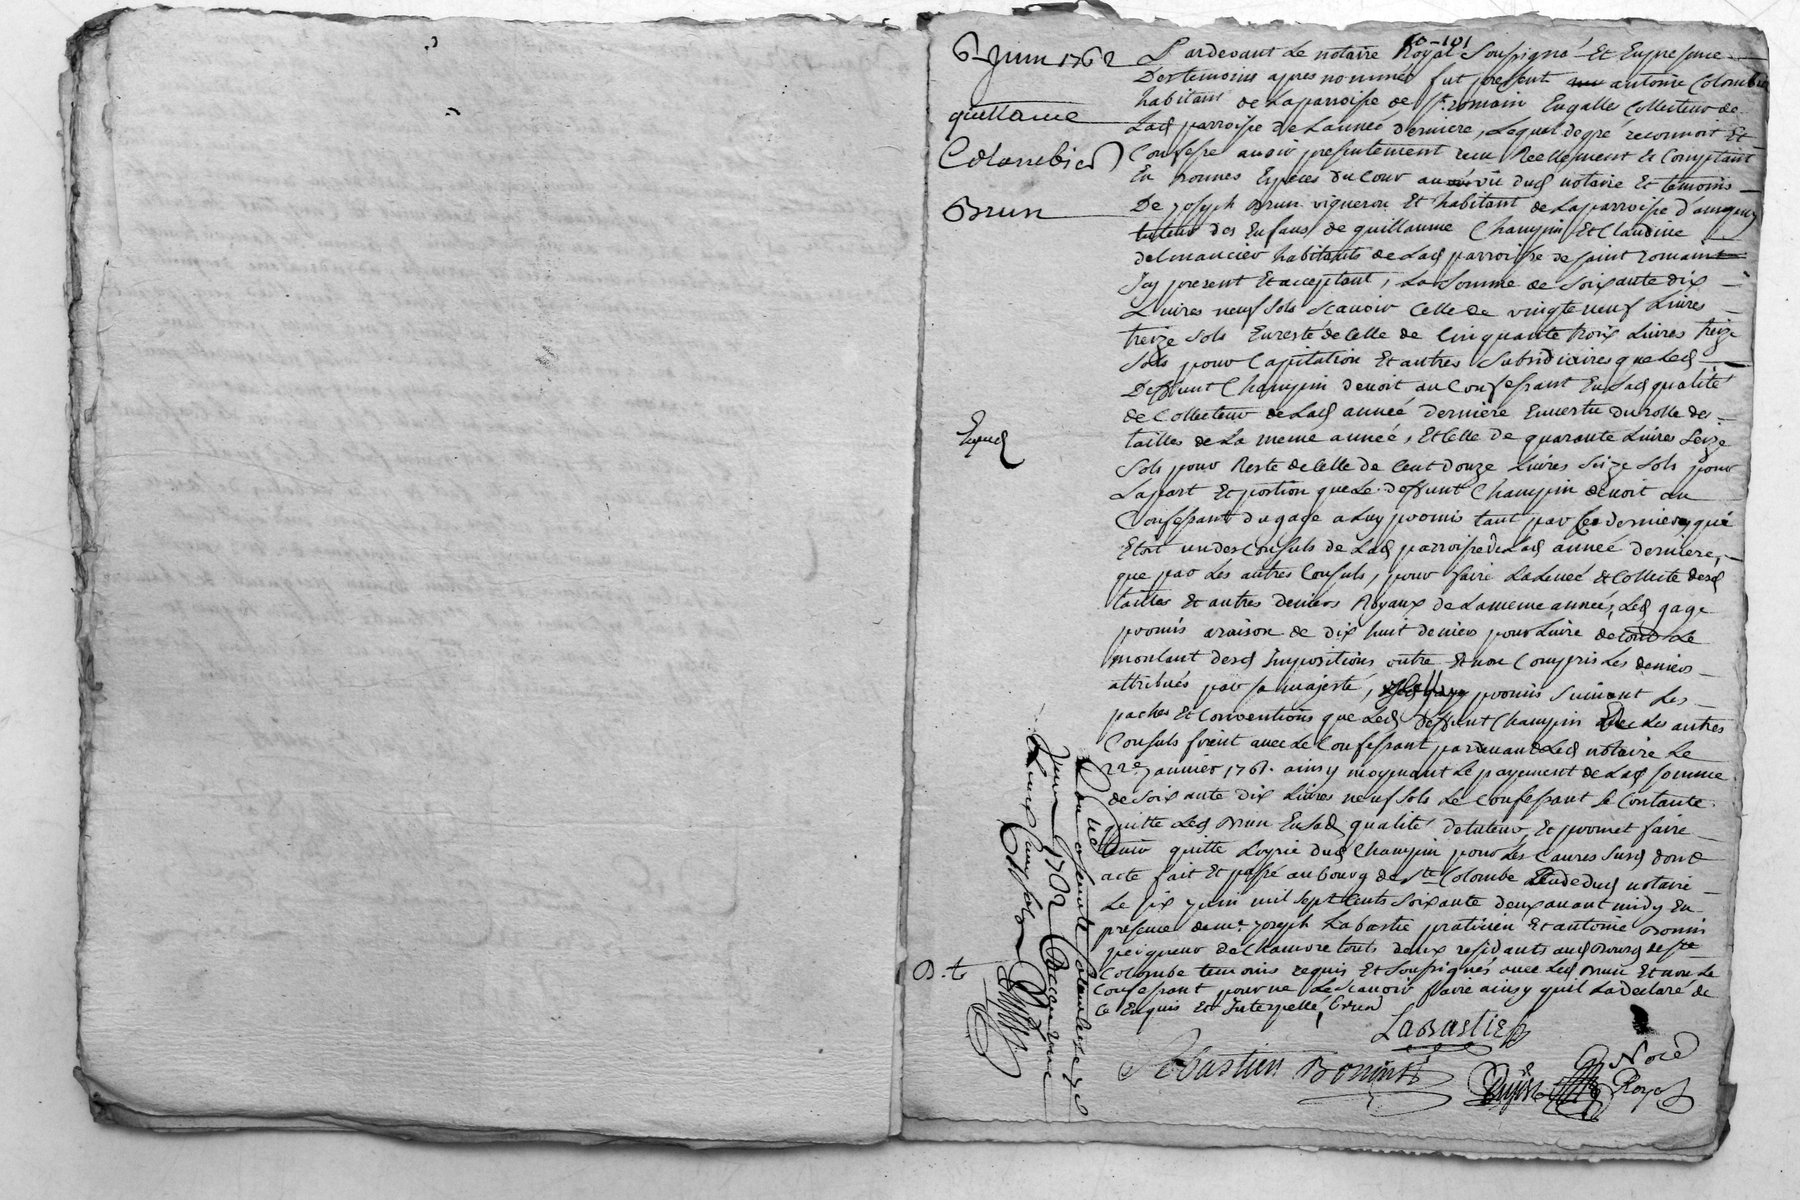 60-101
6 Juin 1762
quittance
Colombier
Brun
Expedé
Pardevant Le notaire Royal Soussigné Et En presence
Des temoins apres nommés fut present antoine Colombier
habitant de La parroisse de St. romain En galles Collecteur de
Lad parroisse de L'année derniere, Lequel de gré reconnoit Et
Confesse avoir presentement reçu Reellement Et Comptant
En bonnes Especes du Cour au vû dud notaire Et temoins
De joseph Brun vigneron Et habitant de La parroisse d'ampuy
tuteur des Enfans de guillaume Champin Et Claudine
habitants de Lad parroisse de saint romain
Icy present Et acceptant, La Somme de Soixante dix
Livres neuf Sols Scavoir Celle de vingt neuf Livres
treize Sols En reste de Celle de Cinquante trois Livres treize
Sols pour Capitation Et autres Subsidiaires que Led
Deffunt Champin devoit au Confessant En Sad qualité
de Collecteur de Lad année derniere En vertu du rolle des
tailles de La meme année, Et Celle de quarante Livres Seize
Sols pour Reste de Celle de Cent Douze Livres Seize Sols pour
La part Et portion que Le deffunt Champin devoit au
Confessant du gage a Luy promis tant par Ce dernier qui
Etoit un des Consuls de Lad parroisse de Lad année derniere,
que par Les autres Consuls, pour faire La Levée Et Collecte desd
tailles Et autres deniers Royaux de La meme année, Led gage
promis a raison de dix huit deniers pour Livre de tout Le
montant desd Impositions outre Et non Compris Les deniers
attribués par sa majesté, promis Suivant Les
paches Et Conventions que Led deffunt Champin avec Les autres
Consuls firent avec Le Confessant pardevant Led notaire Le
22e janvier 1761. ainsy moyenant Le payement de Lad somme
de Soixante dix Livres neuf Sols Le Confessant Se Contante
quitte Led Brun En Sad qualité de tuteur, Et promet faire
tenir quitte L'oyrie dud Champin pour Les Causes Susd dont
acte fait Et passé au bourg de Ste Colombe Etude dud notaire
Le six juin mil sept Cents Soixante deux avant midy En
presence de mr. joseph Labastie praticien Et antoine Bonin
peigneur de Chanvre touts deux residants aud Bourg de ste
Colombe temoins requis Et Soussignés avec Led Brun Et non Le
Confessant pour ne Le Scavoir faire ainsy qu'il La declaré de
Ce Enquis Et Interpellé, brun
LaBastie
Sebastien Bonin
Nore
Royal